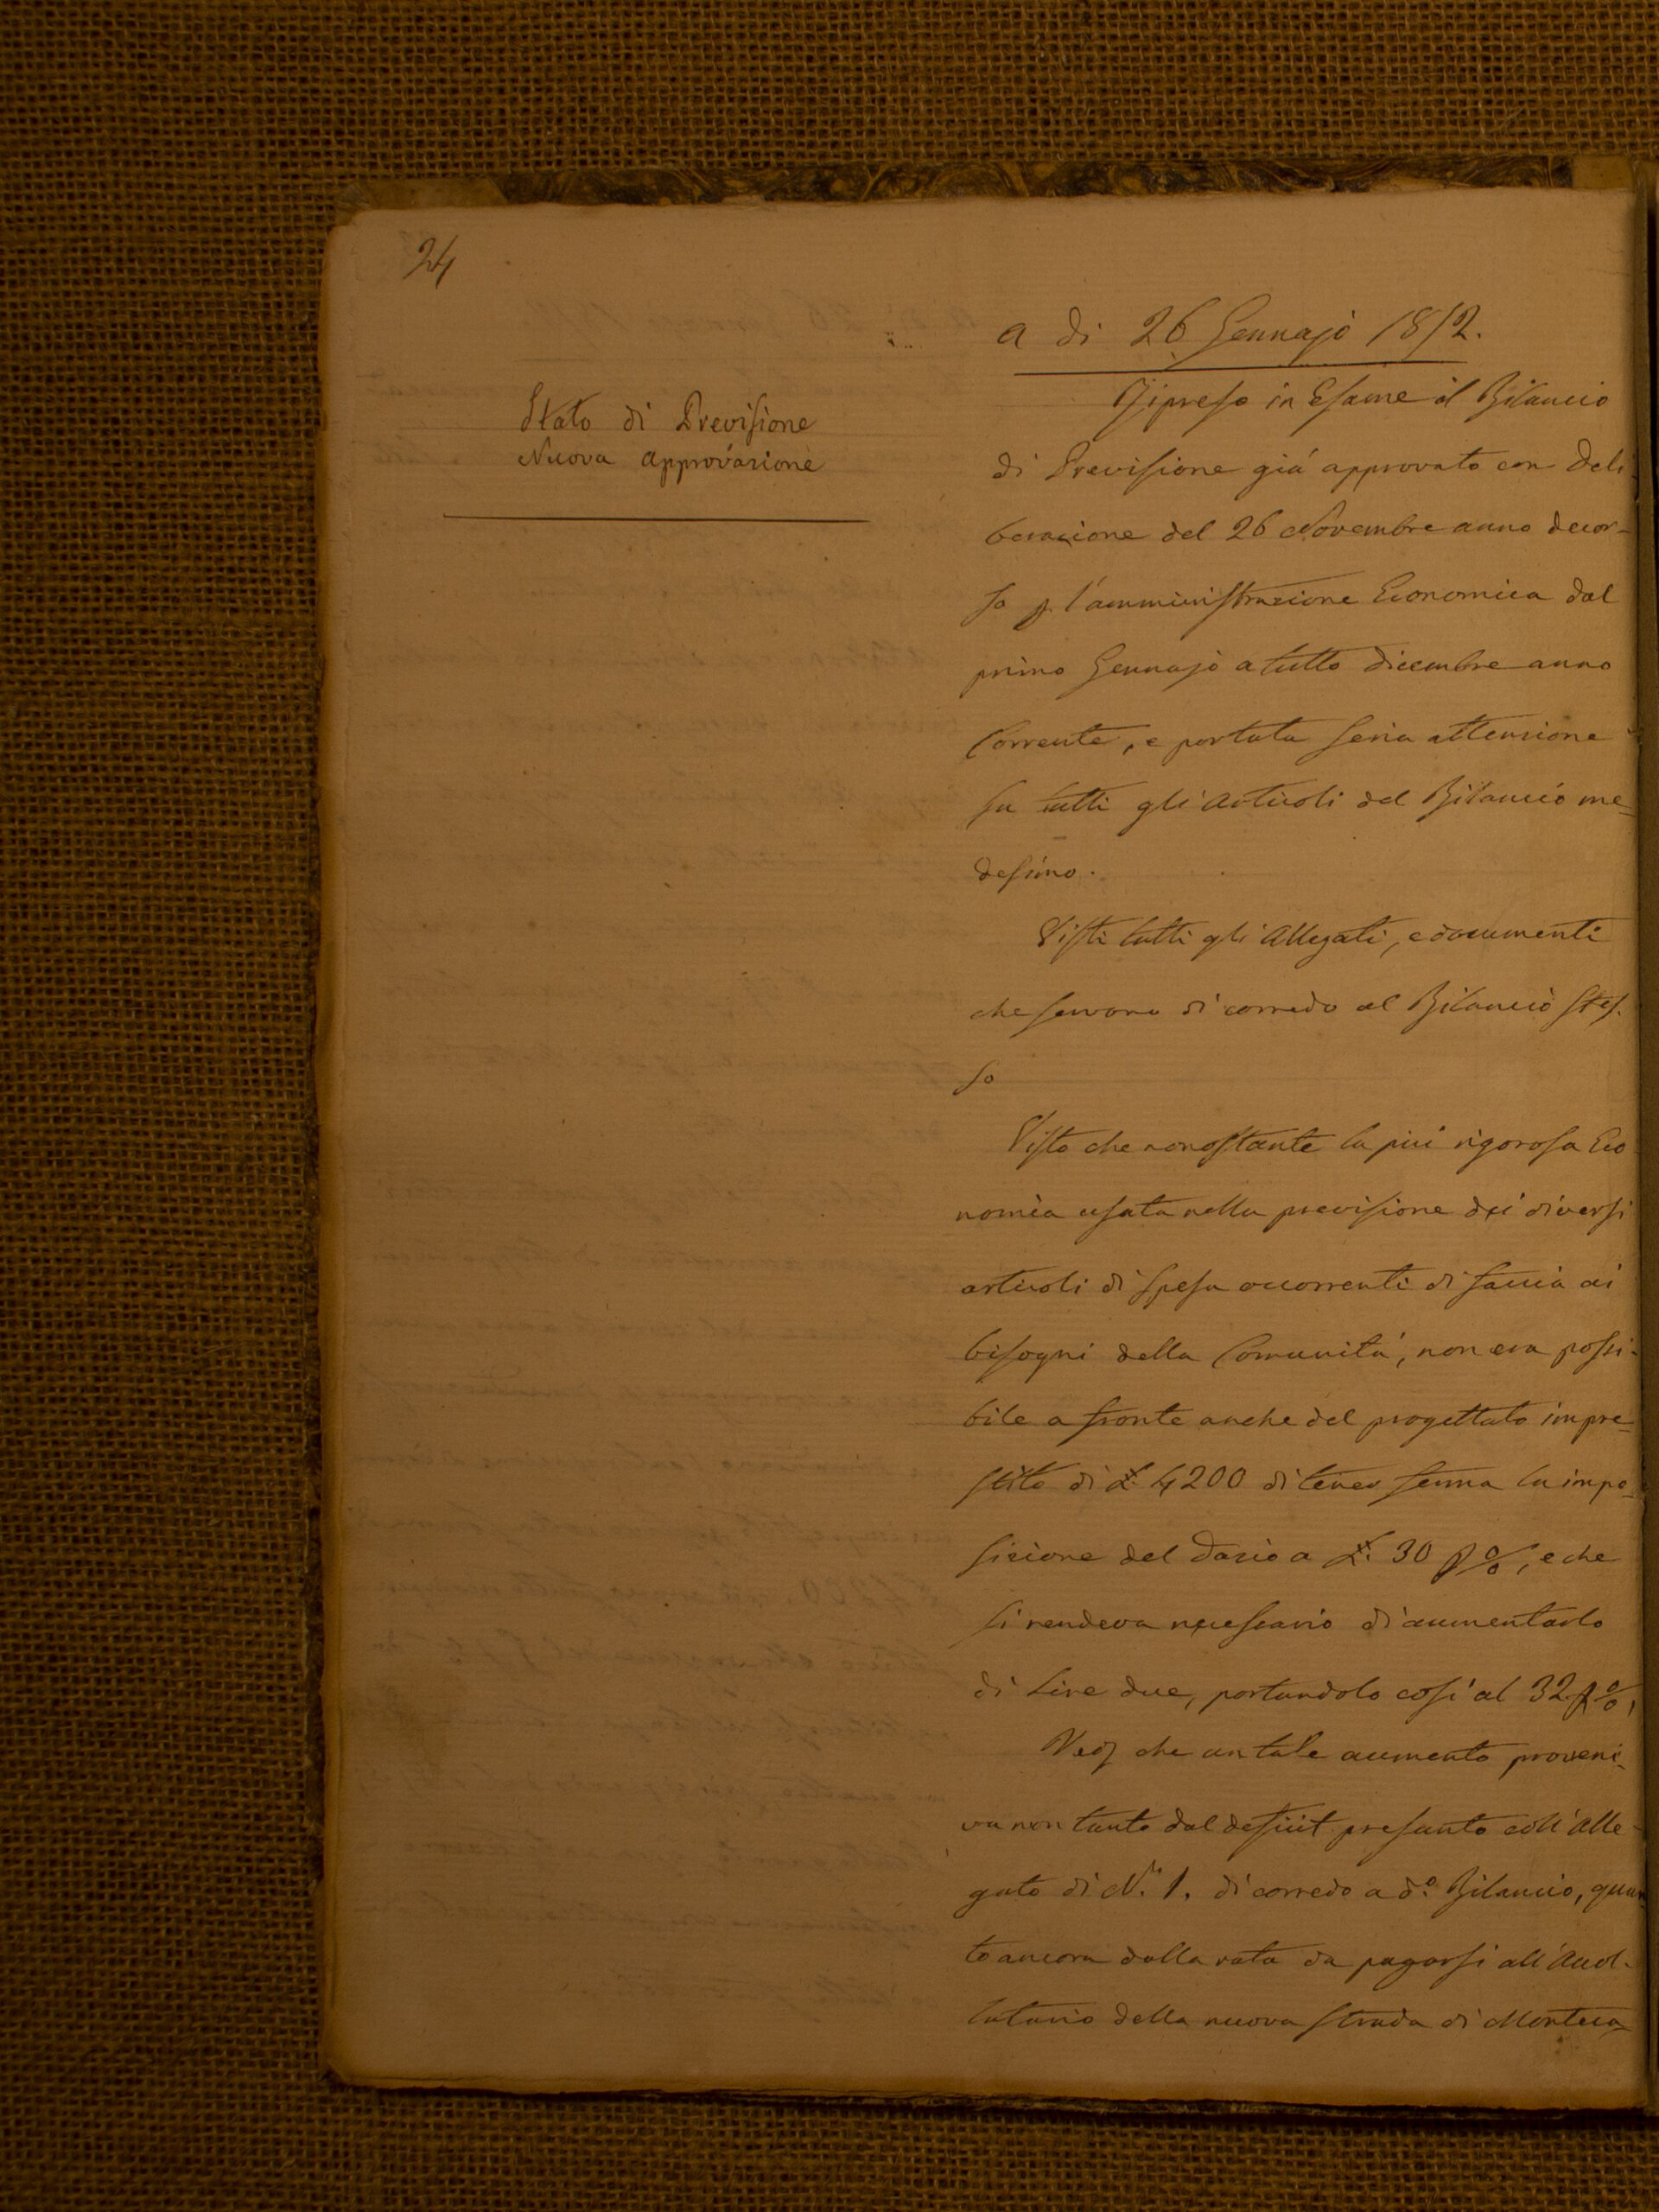 24
a di 26 Gennajo 1852.
Stato di Previsione
Nuova approvazione
Ripreso in Esame il Bilancio
di Previsione giá approvato con deli
berazione del 26 Novembre anno decor-
so p. l'amministrazione Economica dal
primo Gennajo a tutto dicembre anno
Corrente, e portata seria attenzione
su tutti gli articoli del Bilancio me-
desimo.
Visti tutti gli allegati, e documenti
che servono di corredo al Bilancio stes-
so
Visto che nonostante la piú rigorosa Eco
nomia usata nella previsione dei diversi
articoli di spesa occorrenti di faccia ai
bisogni della Comunitá, non era possi-
bile a fronte anche del progettato impre-
stito di £ 4200 di tener ferma la impo-
sizione del dazio a £: 30 p%, e che
si rendeva necessario di aumentarlo
di Lire due, portandolo cosi al 32 p%,
che un tale aumento proveni-
va non tanto dal deficit presunto coll'alle-
gato di N.º 1. di corredo a dº. Bilancio, quan
to ancora dalla rata da pagarsi all'accol-
latario della nuova strada di Monteca